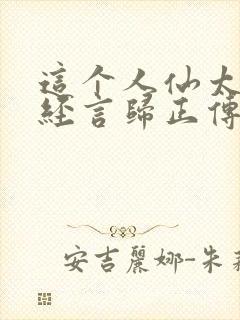 這个人仙太
經言歸正傳
安吉麗娜-朱